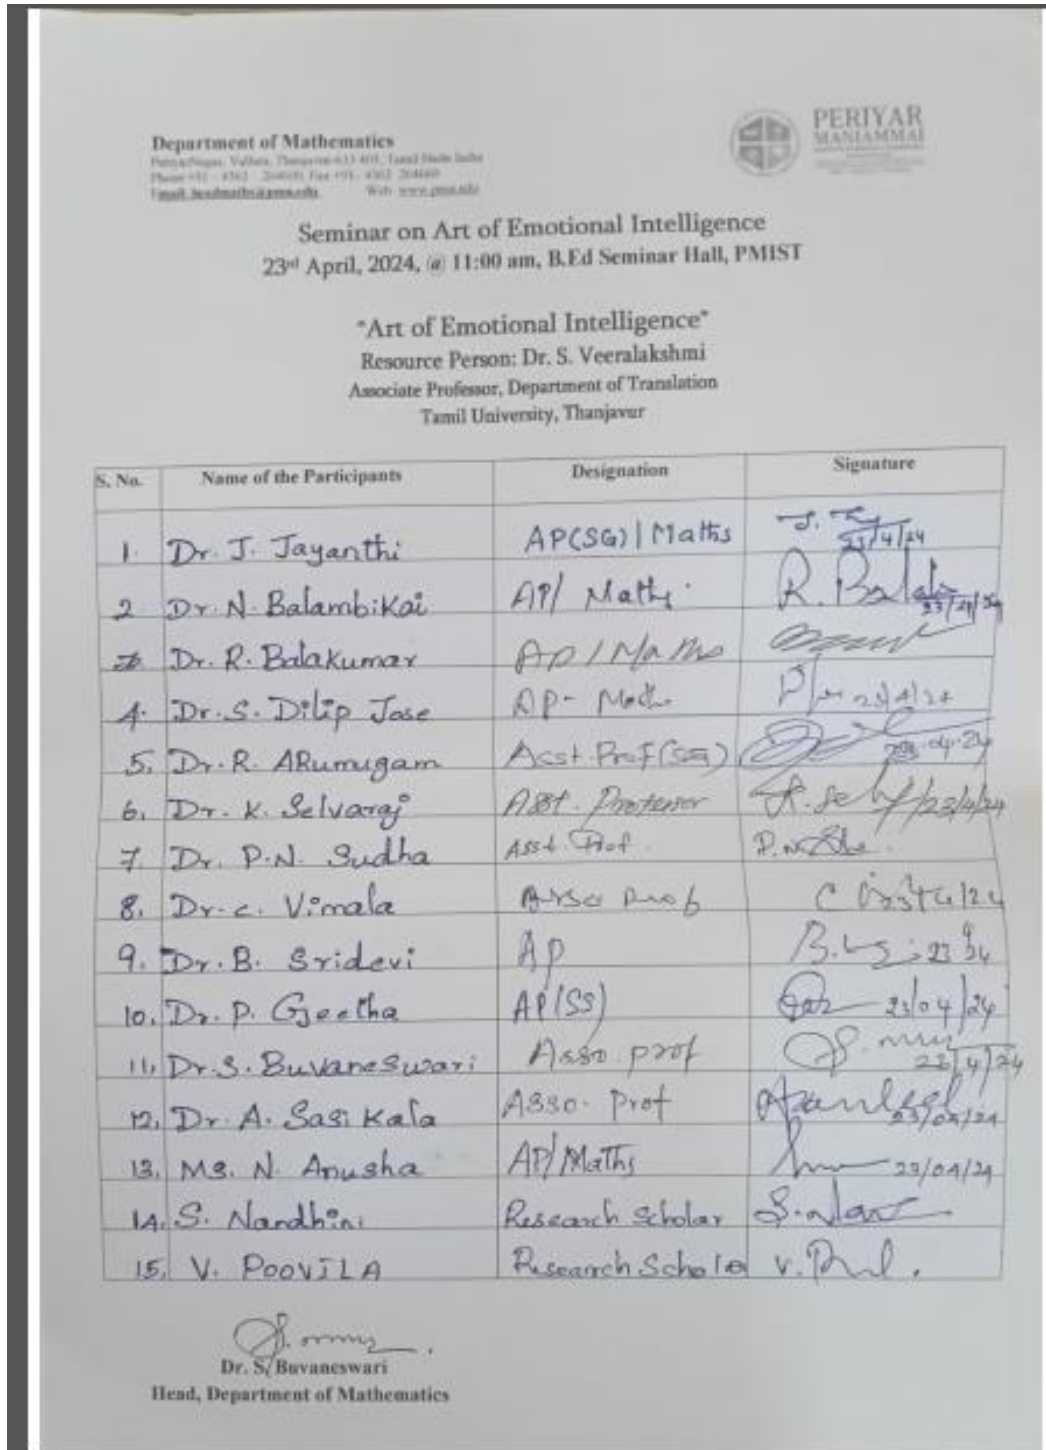 Department of Mathematics
Periyar Nagar, Vallam, Thanjavur-613 403, Tamil Nadu India
Phone +91 - 4362 - 264600 Fax +91- 4362 264660
Email: headmaths@pmu.edu Web: www.pmu.edu
PERIYAR
MANIAMMAI
Seminar on Art of Emotional Intelligence
23rd April, 2024, @ 11:00 am, B.Ed Seminar Hall, PMIST
"Art of Emotional Intelligence"
Resource Person: Dr. S. Veeralakshmi
Associate Professor, Department of Translation
Tamil University, Thanjavur
S. No. Name of the Participants Designation Signature
1. Dr. J. Jayanthi AP(SG) | Maths 23/4/24
2 Dr. N. Balambikai AP/ Maths R. Bala
Dr. R. Balakumar AP / Maths
4. Dr. S. Dilip Jose AP - Maths 23/4/24
5. Dr. R. ARumugam Asst. Prof (SG) 23.04.24
6. Dr. K. Selvaraj Asst. Professor 23/4/24
7. Dr. P.N. Sudha Asst. Prof. P.N.
8. Dr. C. Vimala Asso Prof C
9. Dr. B. Sridevi AP B.
10. Dr. P. Geetha AP(SS) 23/04/24
11. Dr. S. Buvaneswari Asso. prof 23/4/24
12. Dr. A. Sasi Kala Asso. Prof 23/04/24
13. Ms. N. Anusha AP/Maths 23/04/24
14. S. Nandhini Research Scholar S.
15. V. POOVILA Research Schola V.
Dr. S. Buvaneswari
Head, Department of Mathematics